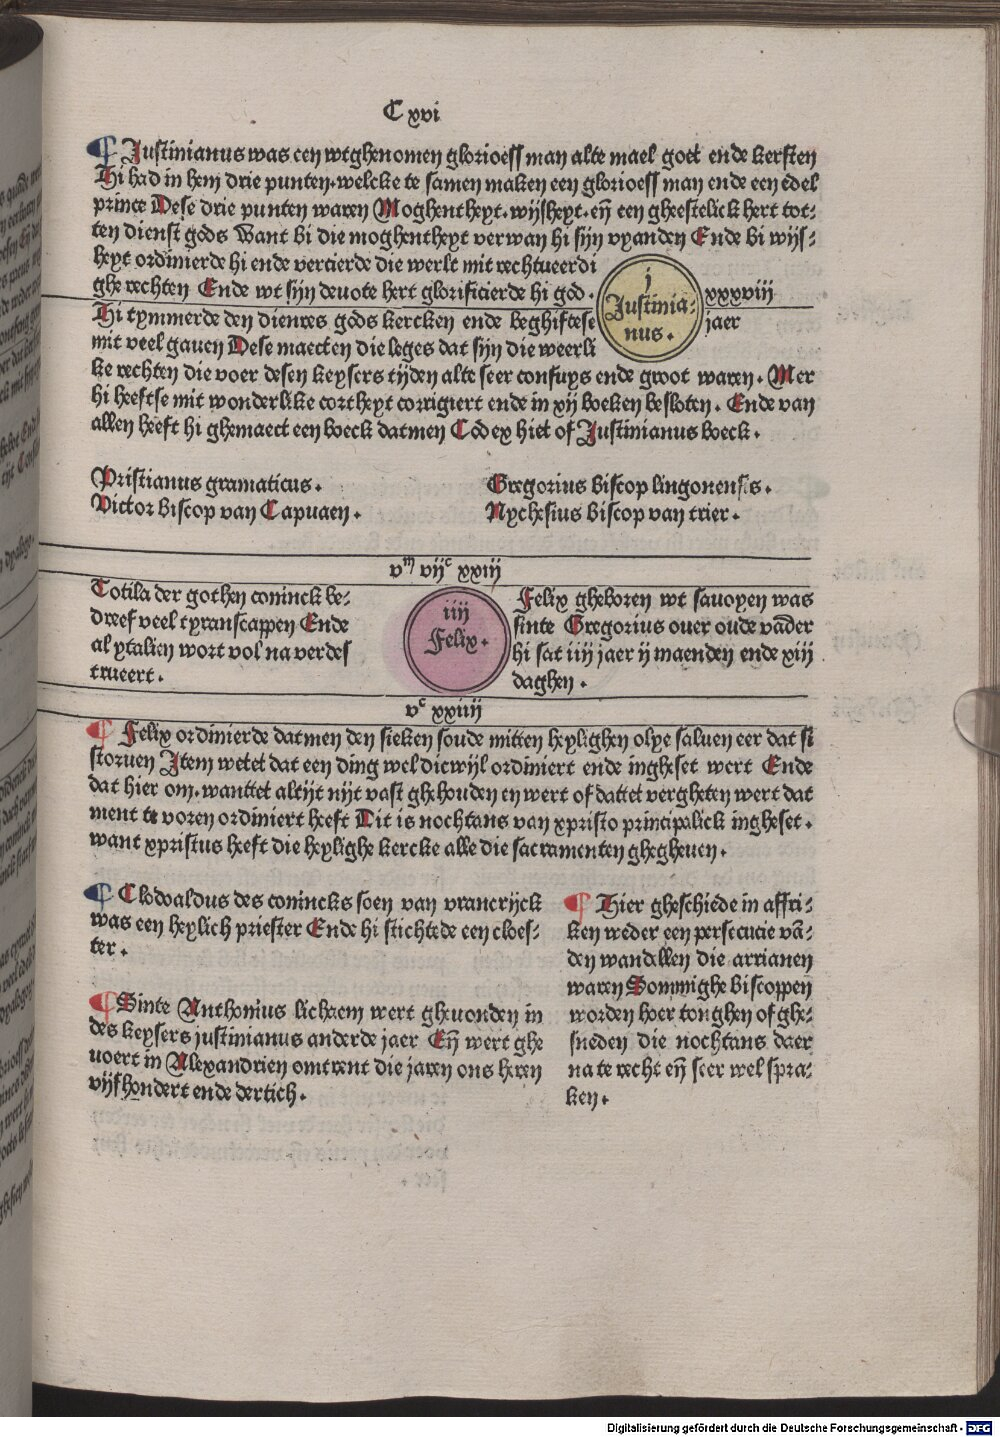 C xvi
¶ Justinianus was een wtghenomen glorioess man alte mael goet ende kersten
Hi had in hem drie punten. welcke te samen maken een glorioess man ende een edel
prince Dese drie punten waren Moghentheyt. wijsheyt. eñ een gheestelick hert tot-
ten dienst gods Want bi die moghentheyt verwan hi sijn vyanden Ende bi wijs-
heyt ordinierde hi ende vercierde die werlt mit rechtueerdi
ghe rechten Ende wt sijn deuote hert glorificierde hi god.
Hi tymmerde den dienres gods kercken ende beghiftese
mit veel gauen Dese maecten die leges dat sijn die weerli
j
Justinia-
nus.
xxxviij
jaer
ke rechten die voer desen keysers tijden alte seer confuys ende groot waren. Mer
hi heeftse mit wonderlike cortheyt corrigiert ende in xij boeken besloten. Ende van
allen heeft hi ghemaect een boeck datmen Codex hiet of Justinianus boeck.
Pristianus gramaticus.
Victor biscop van Capuaen.
Gregorius biscop lingonensis.
Nychesius biscop van trier.
vᵐ vijᶜ xxiij
Totila der gothen coninck be-
dreef veel tyranscappen Ende
al ytalien wort vol na verdes
trueert.
iiij
Felix.
Felix gheboren wt sauoyen was
sinte Gregorius ouer oude vād̄er
hi sat iiij jaer ij maenden ende xiij
daghen.
vᶜ xxiiij
¶ Felix ordinierde datmen den sieken soude mitten heylighen olye saluen eer dat si
storuen Item wetet dat een ding wel dicwijl ordiniert ende ingheset wert Ende
dat hier om. wanttet altijt nijt vast ghehouden en wert of dattet vergheten wert dat
ment te voren ordiniert heeft Dit is nochtans van xpristo principalick ingheset.
want xpristus heeft die heylighe kercke alle die sacramenten ghegheuen.
¶ Clodoaldus des conincks soen van vrancrijck
was een heylich priester Ende hi stichtede een cloes-
ter.
¶ Sinte Anthonius lichaem wert gheuonden in
des keysers justinianus anderde jaer Eñ wert ghe
uoert in Alexandrien omtrent die jaren ons heren
vijfhondert ende dertich.
¶ Hier gheschiede in affri-
ken weder een persecucie vā-
den wandellen die arrianen
waren Sommighe biscoppen
worden hoer tonghen of ghe-
sneden die nochtans daer
na te recht eñ seer wel spra-
ken.
Digitalisierung gefördert durch die Deutsche Forschungsgemeinschaft - DFG